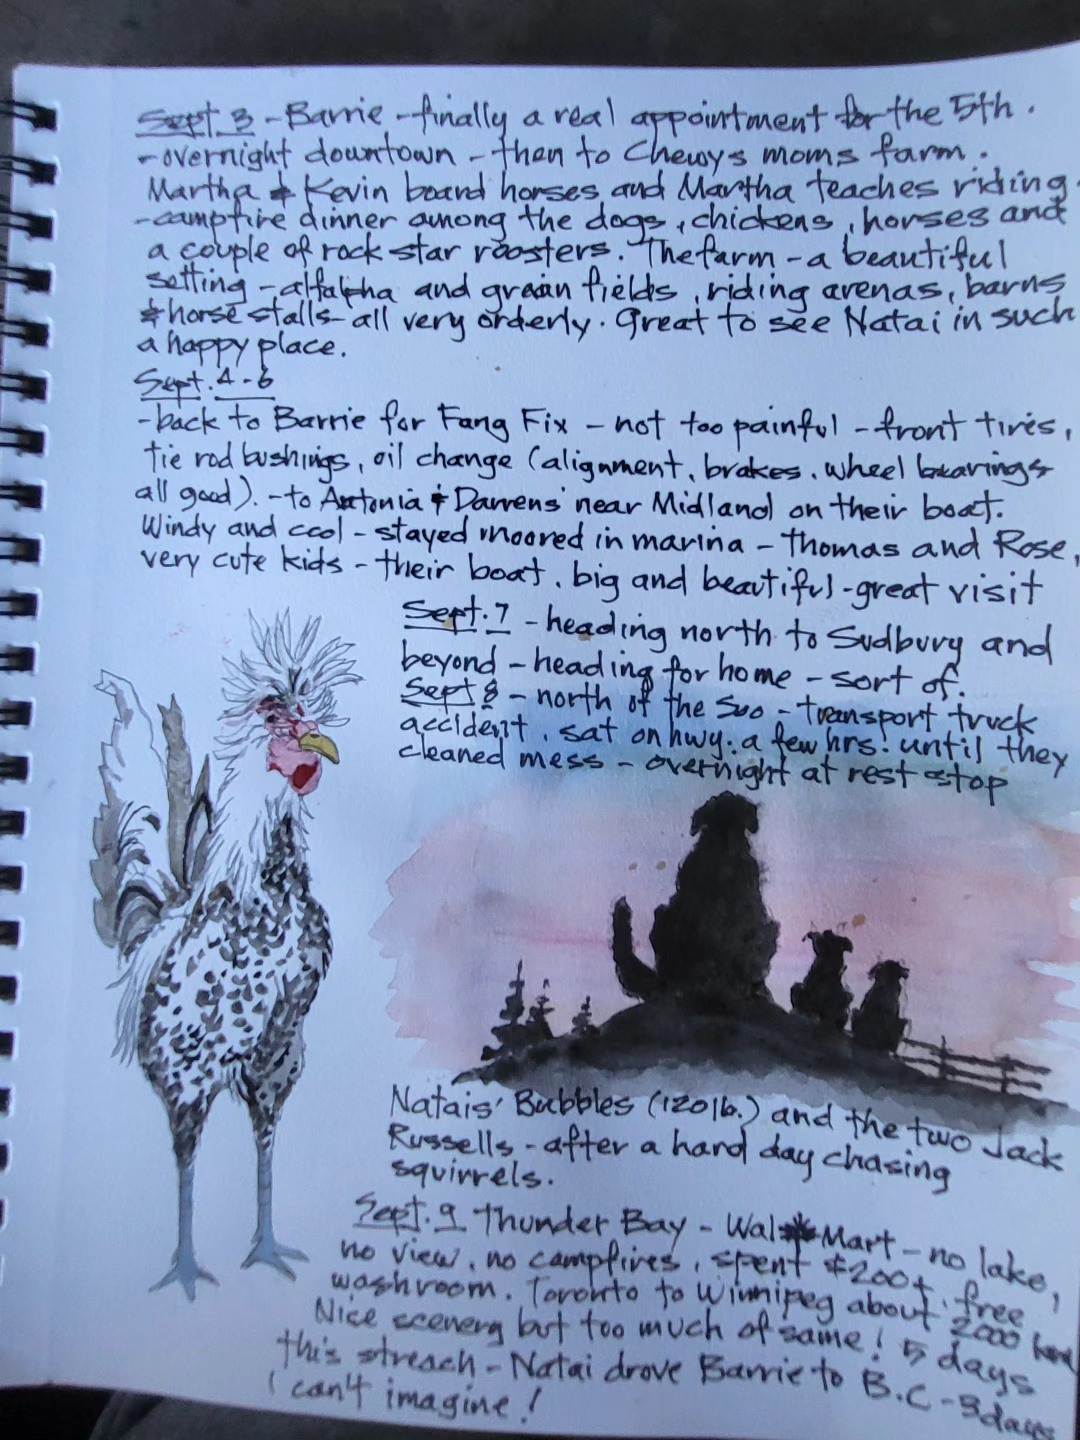 Sept. 3 - Barrie - finally a real appointment for the 5th.
- overnight downtown - then to Chewys moms farm.
Martha & Kevin board horses and Martha teaches riding.
- campfire dinner among the dogs, chickens, horses and
a couple of rock star roosters. The farm - a beautiful
setting - alfalpha and grain fields, riding arenas, barns
& horse stalls - all very orderly. Great to see Natai in such
a happy place.
Sept. 4-6
- back to Barrie for Fang Fix - not too painful - front tires,
tie rod bushings, oil change (alignment, brakes, wheel bearings
all good). - to Antonia & Darrens' near Midland on their boat.
Windy and cool - stayed moored in marina - Thomas and Rose,
very cute kids - their boat, big and beautiful - great visit
Sept. 7 - heading north to Sudbury and
beyond - heading for home - sort of.
Sept 8 - north of the Soo - transport truck
accident, sat on hwy. a few hrs. until they
cleaned mess - overnight at rest stop
Natais' Bubbles (120 lb.) and the two Jack
Russells - after a hard day chasing
squirrels.
Sept. 9 Thunder Bay - Wal Mart - no lake,
no view, no campfires, spent $200+, free
washroom. Toronto to Winnipeg about 2000
Nice scenery but too much of same! 5 days
this streach - Natai drove Barrie to B.C - 3 days
I can't imagine!